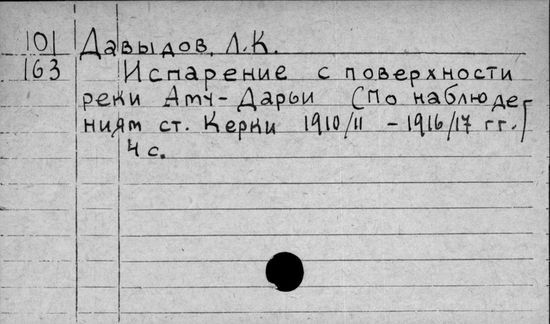 101 Давыдов, Л.К.
163 Испарение с поверхности
реки Аму-Дарьи (По наблюде-
ниям ст. Керки 1910/11 - 1916/17 гг.)
4 с.